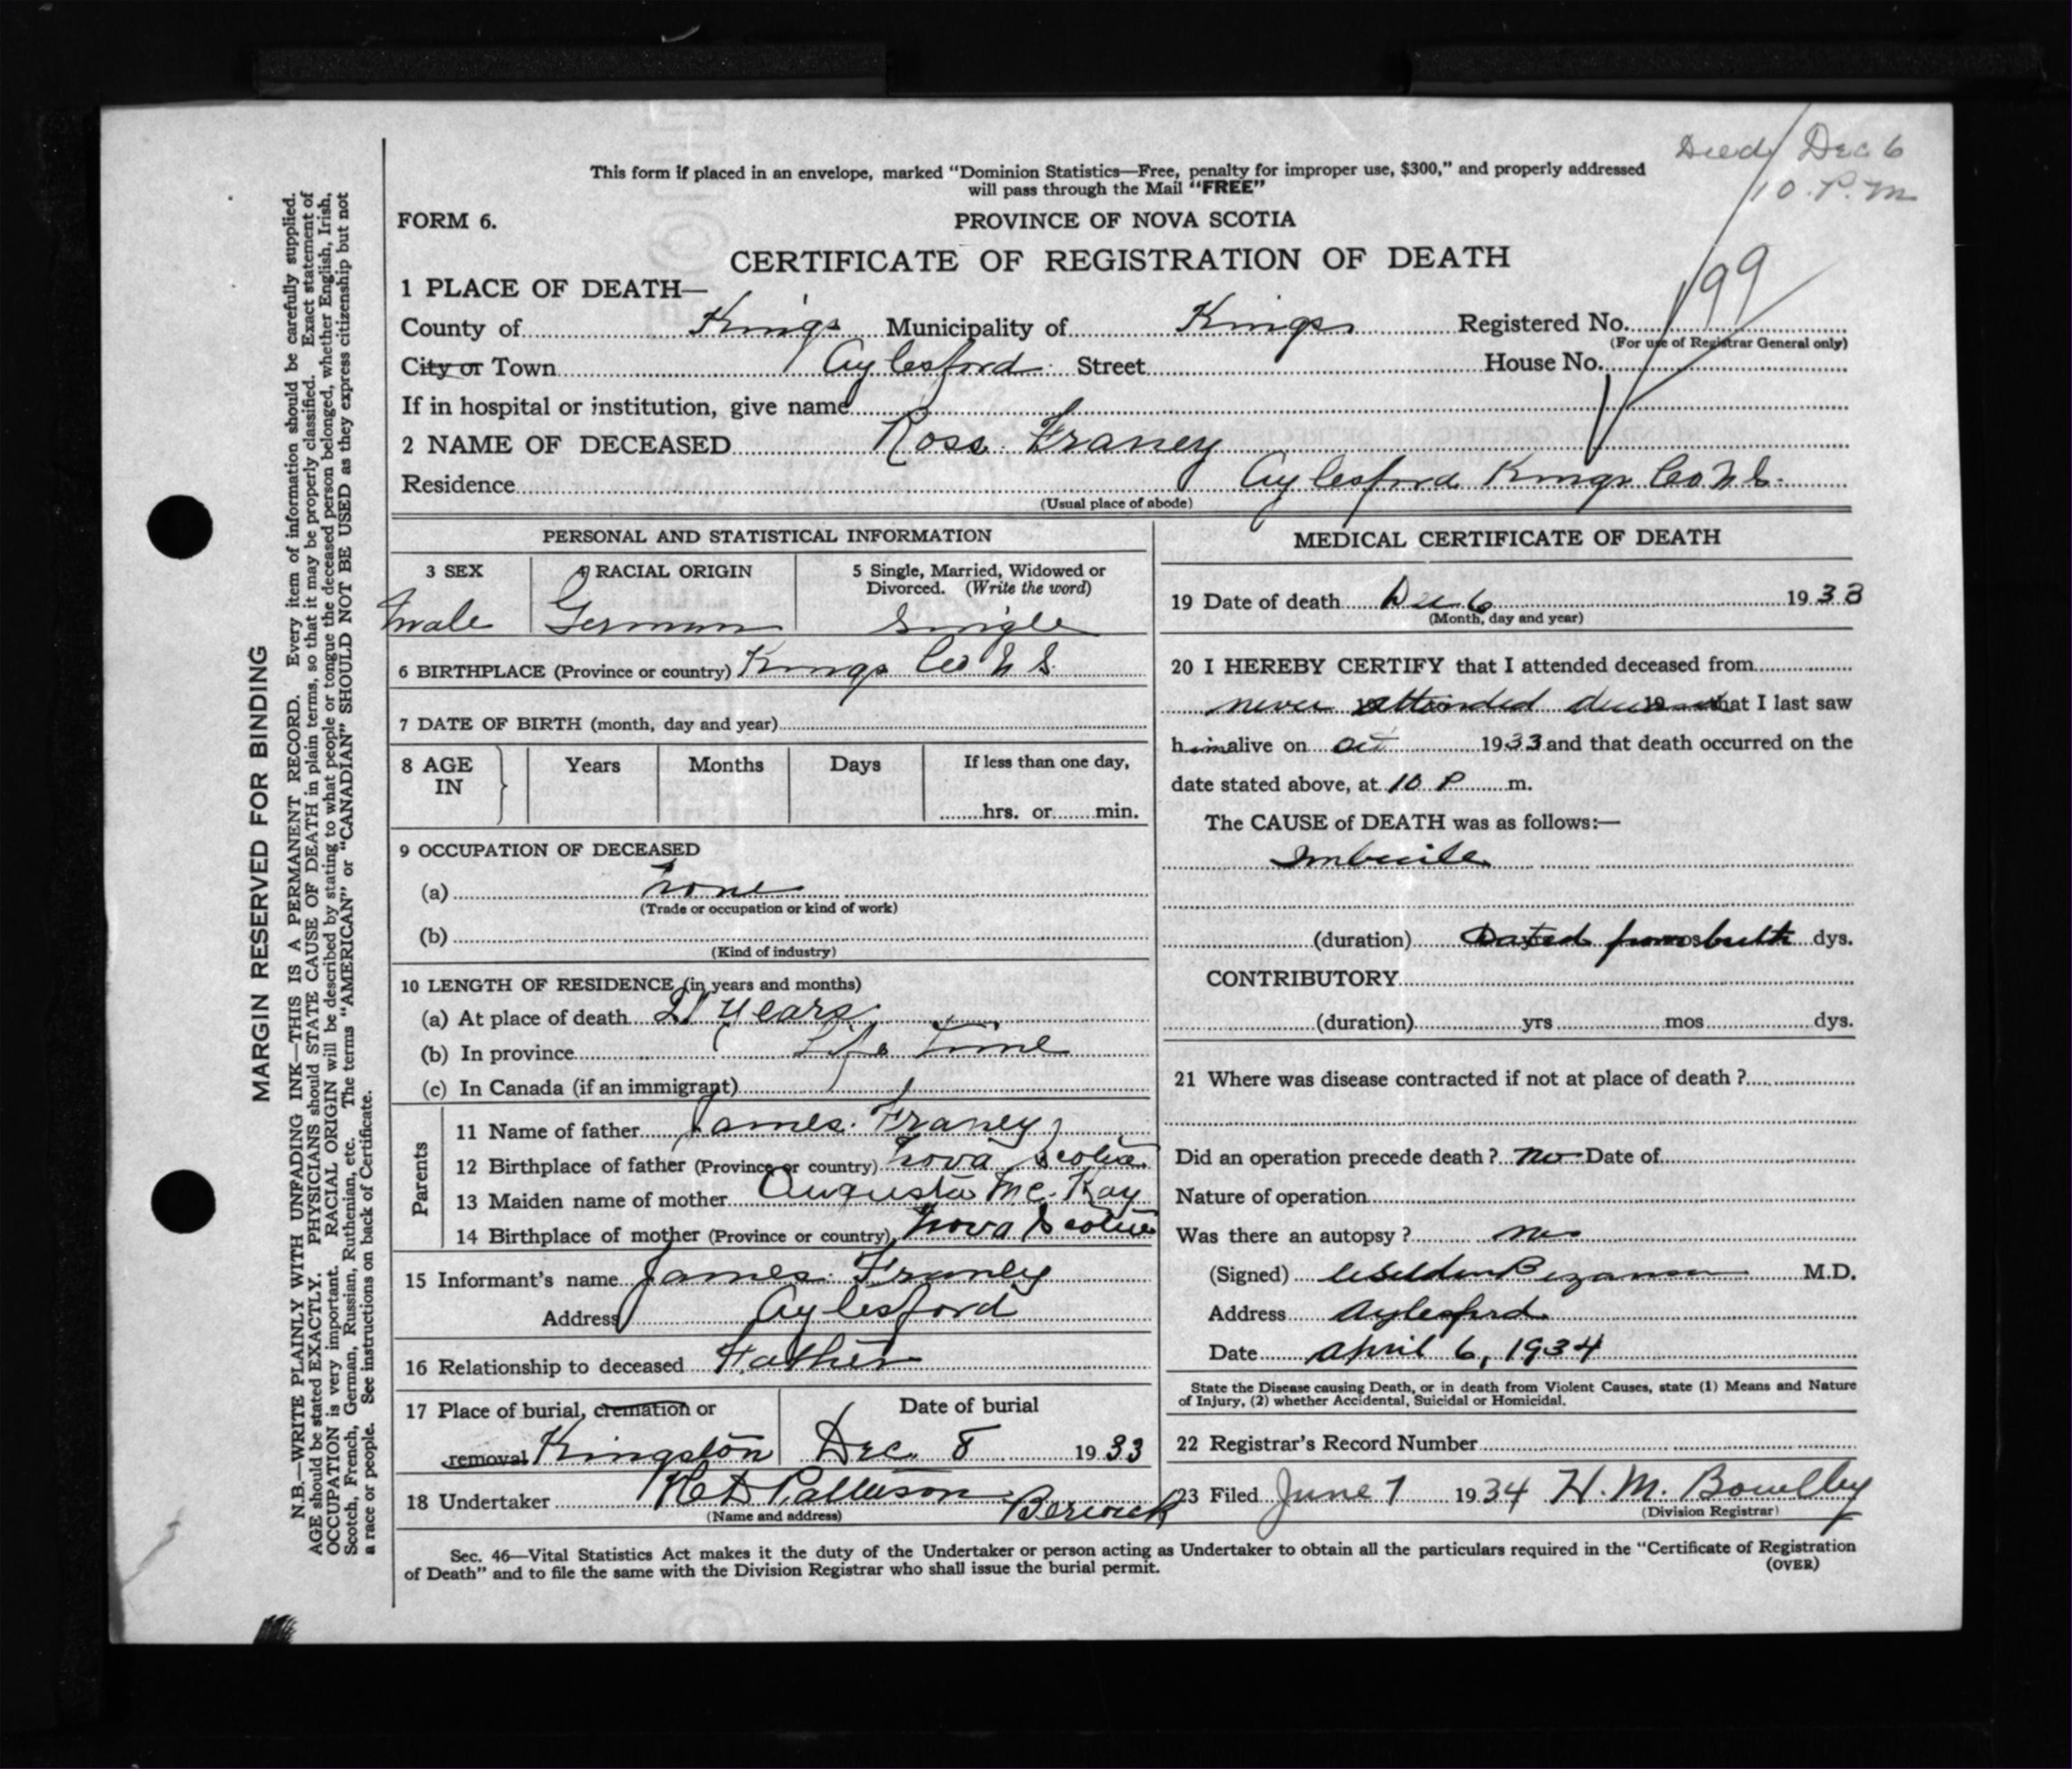 Died Dec 6
10 P.M
This form if placed in an envelope, marked "Dominion Statistics—Free, penalty for improper use, $300," and properly addressed
will pass through the Mail "FREE"
FORM 6.
PROVINCE OF NOVA SCOTIA
CERTIFICATE OF REGISTRATION OF DEATH
199
1 PLACE OF DEATH—
County of Kings Municipality of Kings Registered No.
(For use of Registrar General only)
City or Town Aylesford Street House No.
If in hospital or institution, give name
2 NAME OF DECEASED Ross Franey
Residence Aylesford Kings Co N.S.
(Usual place of abode)
PERSONAL AND STATISTICAL INFORMATION
3 SEX
Male
4 RACIAL ORIGIN
German
5 Single, Married, Widowed or
Divorced. (Write the word)
Single
6 BIRTHPLACE (Province or country) Kings Co N S.
7 DATE OF BIRTH (month, day and year)
8 AGE
IN
Years Months Days If less than one day,
hrs. or min.
9 OCCUPATION OF DECEASED
(a) None
(Trade or occupation or kind of work)
(b)
(Kind of industry)
10 LENGTH OF RESIDENCE (in years and months)
(a) At place of death 21 Years
(b) In province Life Time
(c) In Canada (if an immigrant)
Parents
11 Name of father James Franey
12 Birthplace of father (Province or country) Nova Scotia
13 Maiden name of mother Augusta Mc. Kay
14 Birthplace of mother (Province or country) Nova Scotia
15 Informant's name James Franey
Address Aylesford
16 Relationship to deceased Father
17 Place of burial, cremation or
removal Kingston
Date of burial
Dec. 8 1933
18 Undertaker Berwick
(Name and address)
MEDICAL CERTIFICATE OF DEATH
19 Date of death Dec 6 1933
(Month, day and year)
20 I HEREBY CERTIFY that I attended deceased from
never attended deceased 19 that I last saw
him alive on Oct 1933 and that death occurred on the
date stated above, at 10 P m.
The CAUSE of DEATH was as follows:—
Imbecile
(duration) Dated from birth dys.
CONTRIBUTORY
(duration) yrs mos dys.
21 Where was disease contracted if not at place of death ?
Did an operation precede death ? no Date of
Nature of operation
Was there an autopsy ? no
(Signed) Bezanson M.D.
Address Aylesford
Date April 6, 1934
State the Disease causing Death, or in death from Violent Causes, state (1) Means and Nature
of Injury, (2) whether Accidental, Suicidal or Homicidal.
22 Registrar's Record Number
23 Filed June 7 1934 H. M.
(Division Registrar)
Sec. 46—Vital Statistics Act makes it the duty of the Undertaker or person acting as Undertaker to obtain all the particulars required in the "Certificate of Registration
of Death" and to file the same with the Division Registrar who shall issue the burial permit.
(OVER)
MARGIN RESERVED FOR BINDING
N.B.—WRITE PLAINLY WITH UNFADING INK—THIS IS A PERMANENT RECORD. Every item of information should be carefully supplied.
AGE should be stated EXACTLY. PHYSICIANS should STATE CAUSE OF DEATH in plain terms, so that it may be properly classified. Exact statement of
OCCUPATION is very important. RACIAL ORIGIN will be described by stating to what people or tongue the deceased person belonged, whether English, Irish,
Scotch, French, German, Russian, Ruthenian, etc. The terms "AMERICAN" or "CANADIAN" SHOULD NOT BE USED as they express citizenship but not
a race or people. See instructions on back of Certificate.